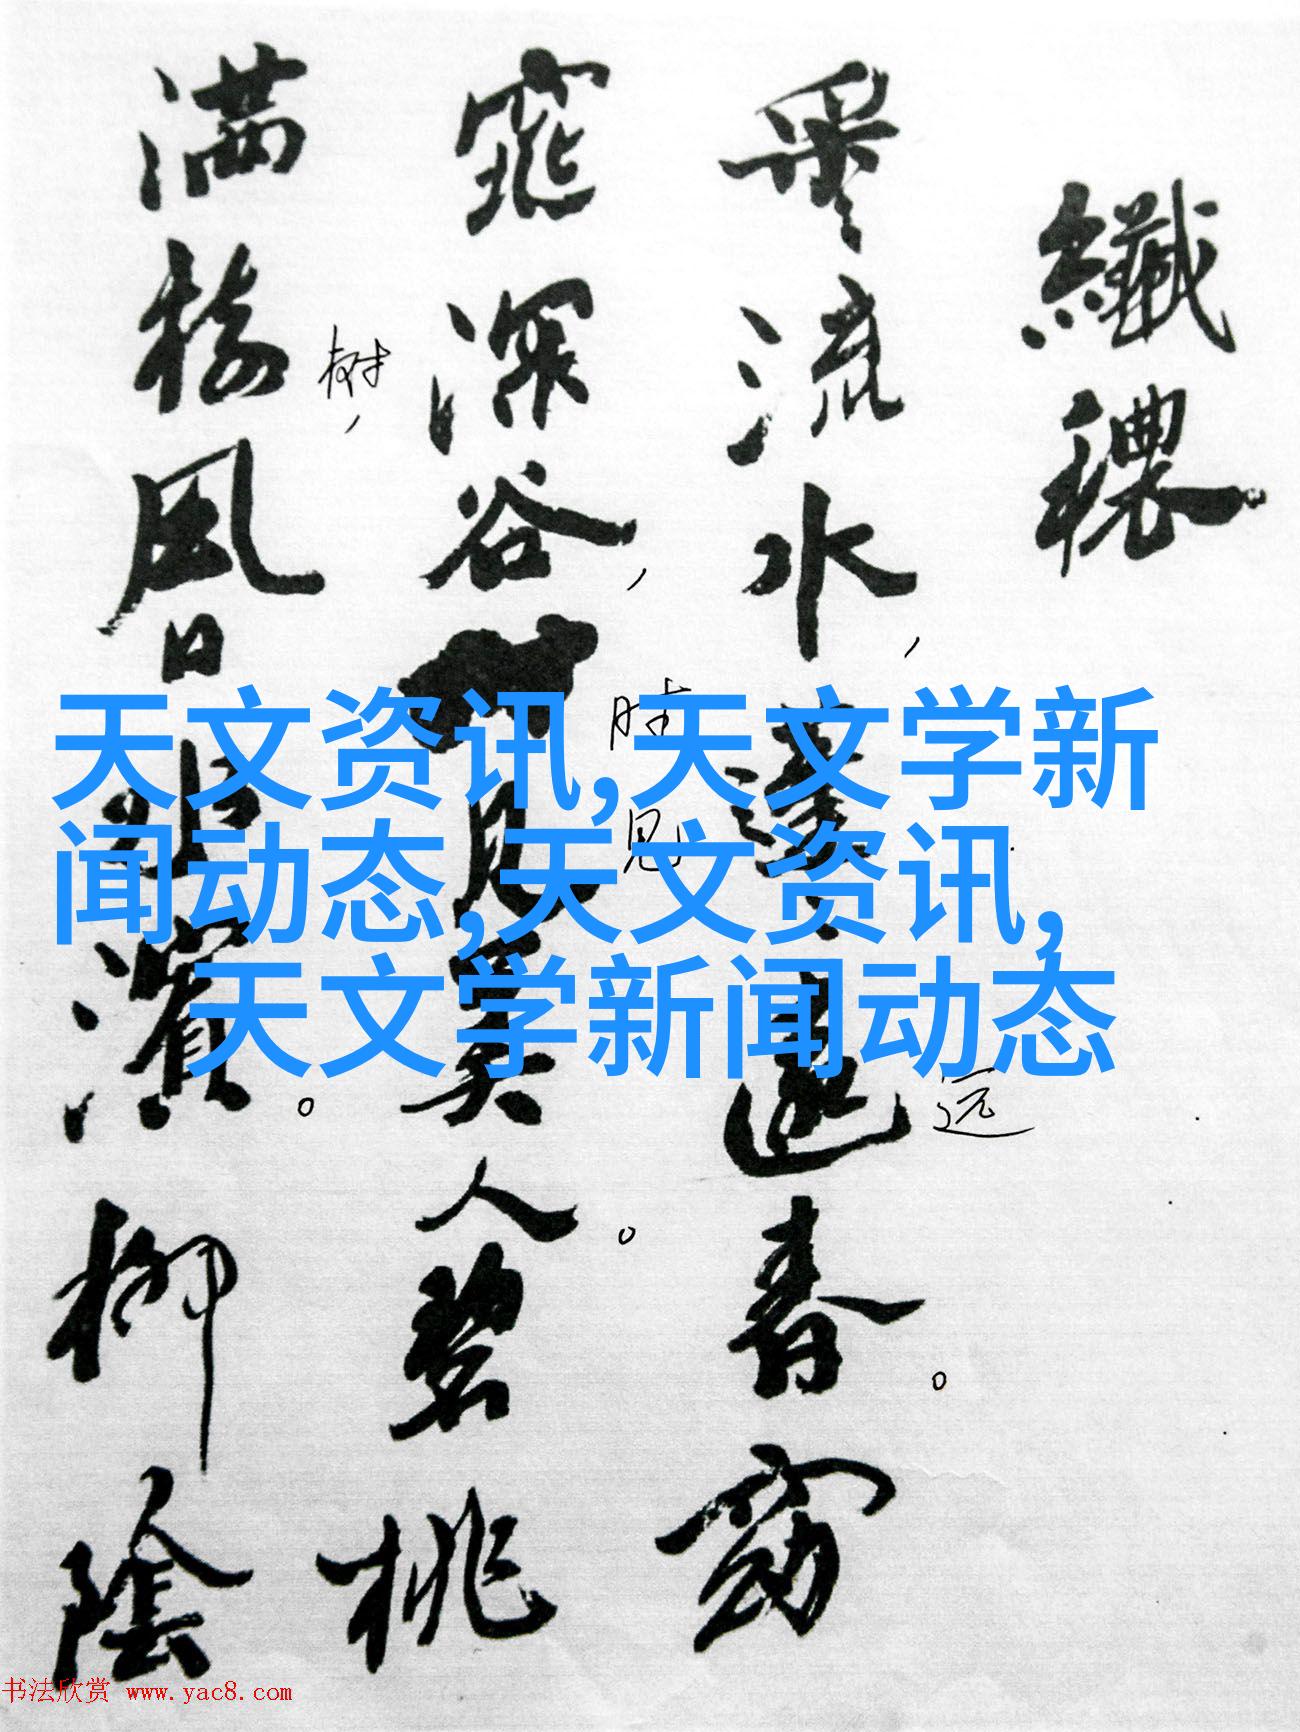 纖穠
采〻流水,蓬〻遠春。窈
窕深谷,時見美人。碧桃
满樹,風日水濱。柳陰
远
时
见
树
天文资讯,天文学新
闻动态,天文资讯,
天文学新闻动态
书法欣赏 www.yac8.com